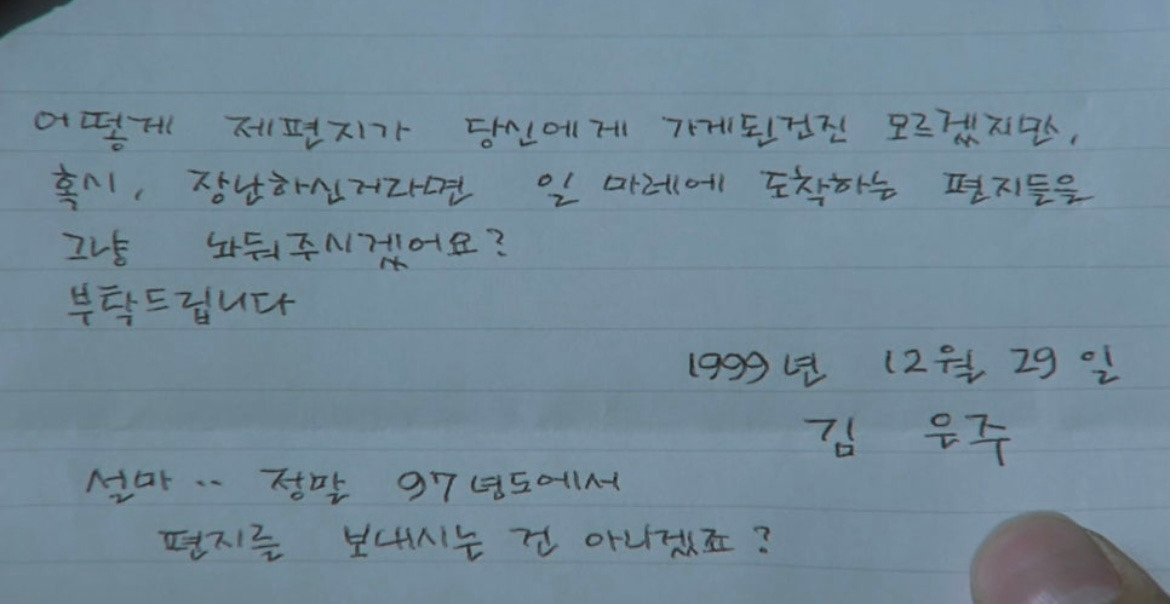 어떻게 제편지가 당신에게 가게된건진 모르겠지만,
혹시, 장난하신거라면 일 마레에 도착하는 편지들을
그냥 놔둬주시겠어요?
부탁드립니다
1999년 12월 29일
김 은주
설마.. 정말 97년도에서
편지를 보내시는 건 아니겠죠?